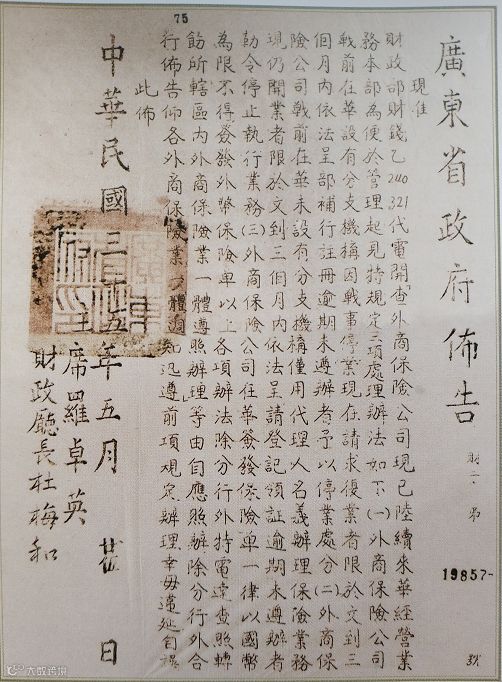 75
廣東省政府佈告
財 字 第
19857
號
現准
財政部財錢乙240321代電開查外商保險公司現已陸續來華經營業
務本部為便於管理起見特規定三項處理辦法如下(一)外商保險公司
戰前在華設有分支機構因戰事停業現在請求復業者限於文到三
個月內依法呈部補行註冊逾期未遵辦者予以停業處分(二)外商保
險公司戰前在華未設有分支機構僅用代理人名義辦理保險業務
現仍開業者限於文到三個月內依法呈請登記領証逾期未遵辦者
勒令停止執行業務(三)外商保險公司在華簽發保險單一律以國幣
為限不得簽發外幣保險單以上各項辦法除分行外特電達查照轉
飭所轄區內外商保險業一體遵照辦理等由自應照辦除分行外合
行佈告仰各外商保險業一體週知迅遵前項規定辦理幸毋違延自誤
此佈
中華民國三十五年五月 廿 日
主席羅卓英
財政廳長杜梅和
大数跨境